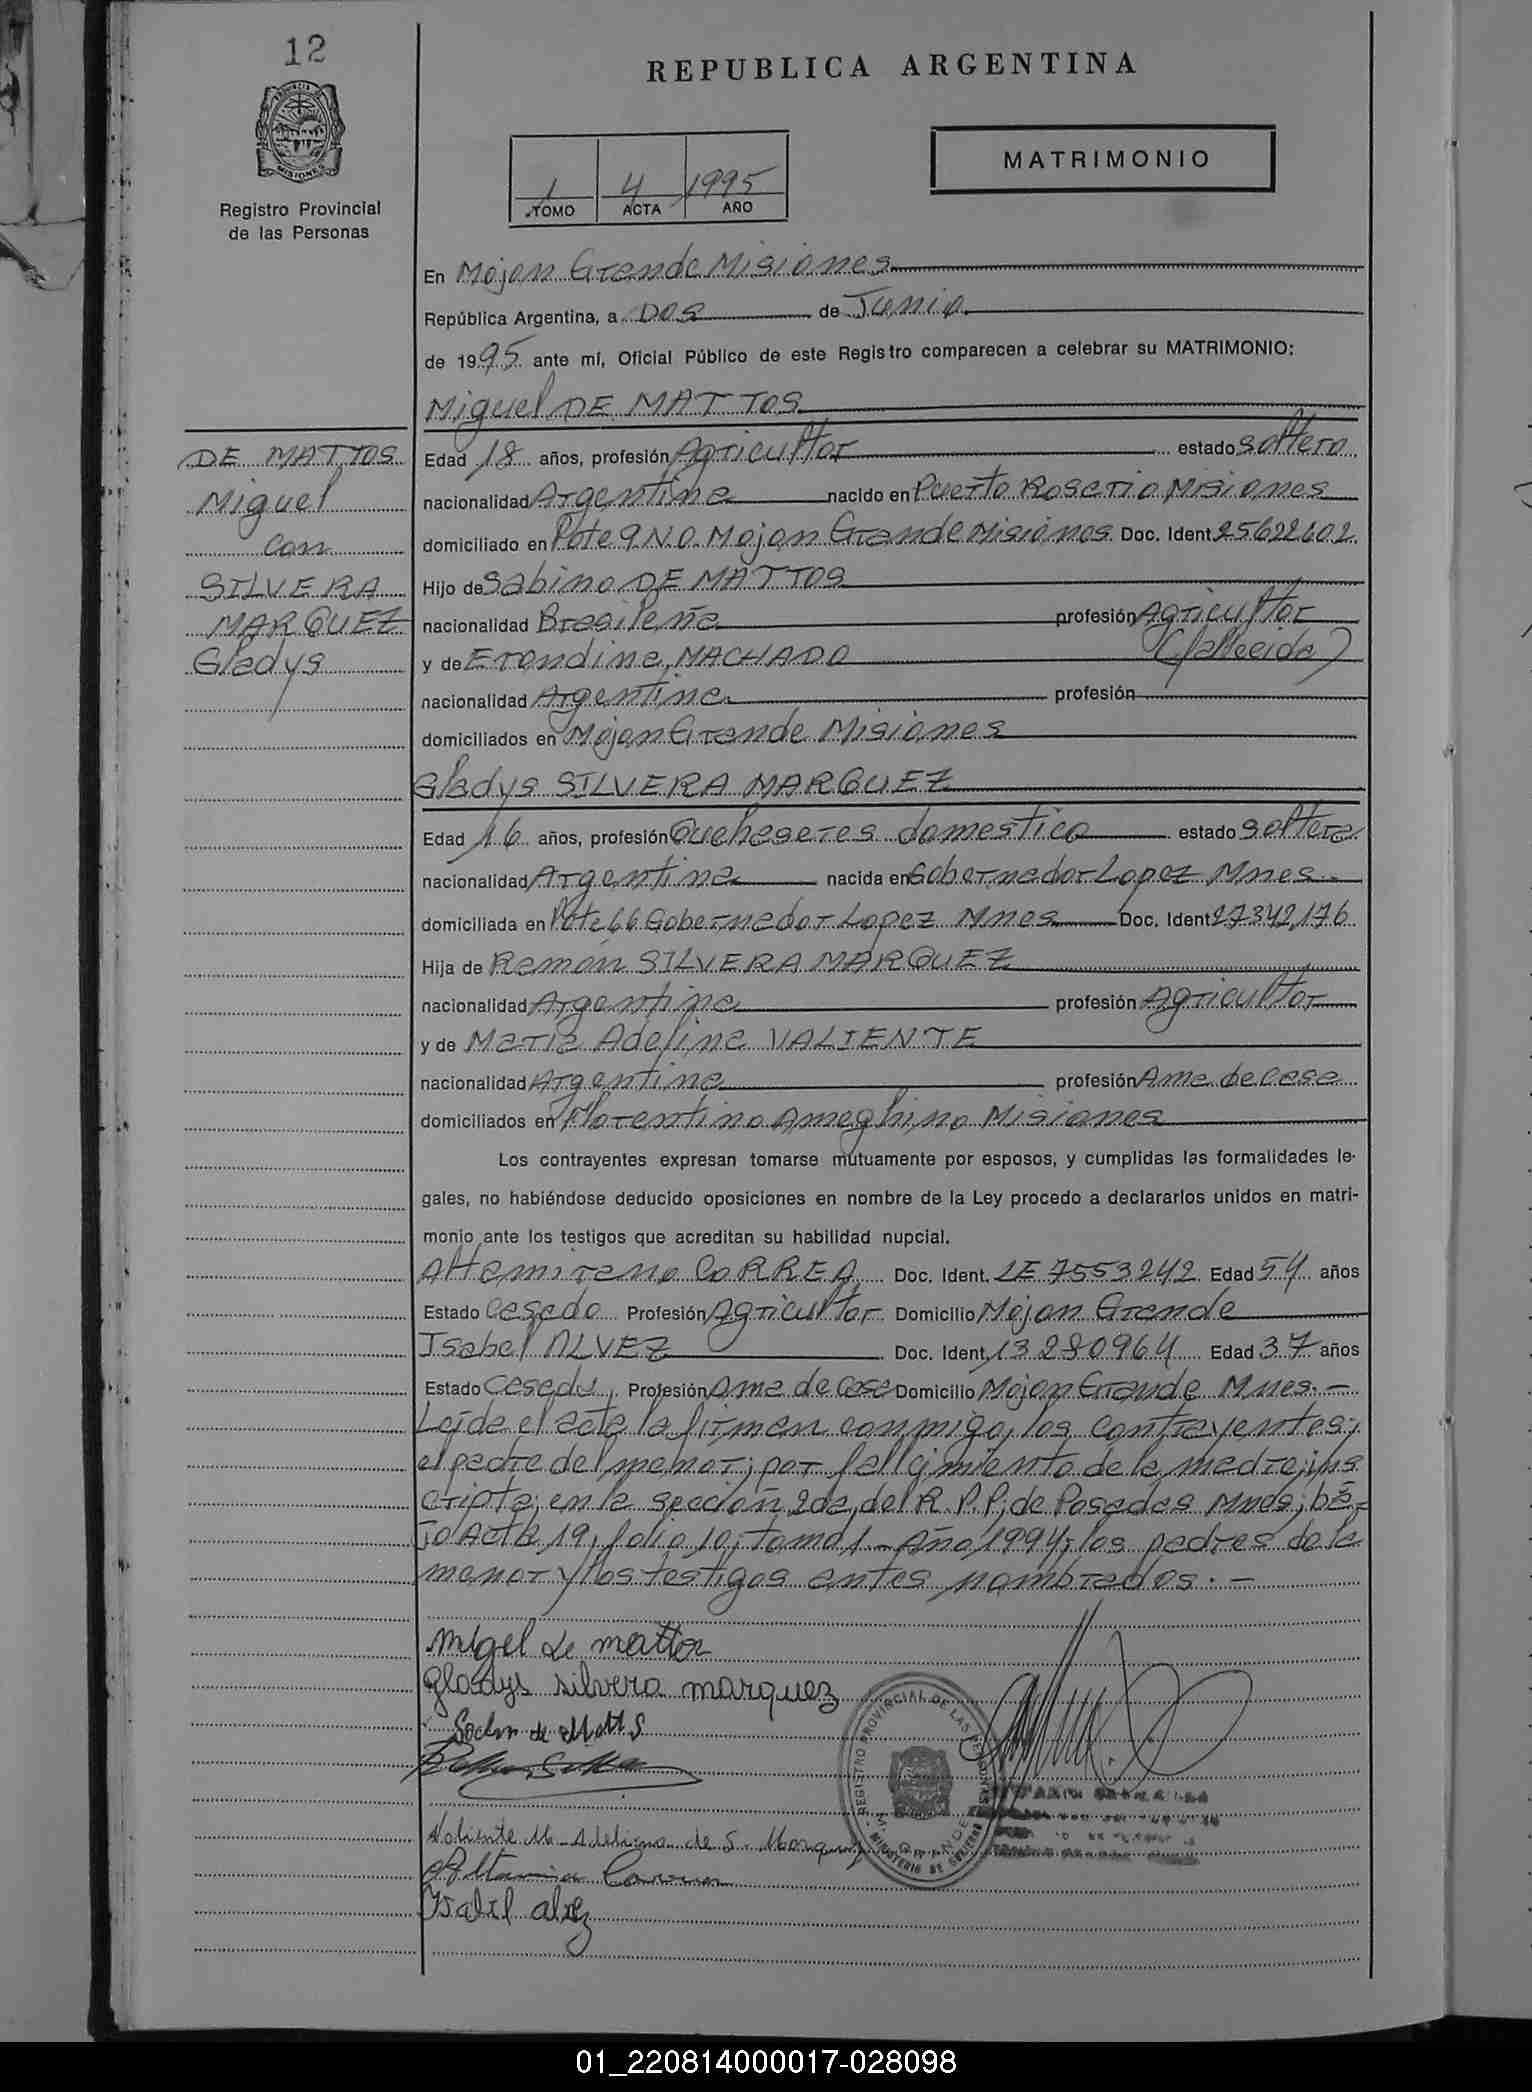 12
REPUBLICA ARGENTINA
PROVINCIA DE
MISIONES
Registro Provincial
de las Personas
MATRIMONIO
1 4 1995
TOMO ACTA AÑO
En Mojon Grande Misiones
República Argentina, a Dos de Junio
de 1995 ante mí, Oficial Público de este Registro comparecen a celebrar su MATRIMONIO:
Miguel DE MATTOS
DE MATTOS
Miguel
con
SILVERA
MARQUEZ
Gladys
Edad 18 años, profesión Agricultor estado soltero
nacionalidad Argentina nacido en Puerto Rosario Misiones
domiciliado en Lote 9 N.O. Mojon Grande Misiones Doc. Ident 25622602
Hijo de Sabino DE MATTOS
nacionalidad Brasileña profesión Agricultor
y de Erondina MACHADO (fallecida)
nacionalidad Argentina profesión
domiciliados en Mojon Grande Misiones
Gladys SILVERA MARQUEZ
Edad 16 años, profesión Quehaseres domestico estado soltera
nacionalidad Argentina nacida en Gobernador Lopez Mnes.-
domiciliada en Lote 66 Gobernador Lopez Mnes Doc. Ident 27342176
Hija de Ramón SILVERA MARQUEZ
nacionalidad Argentina profesión Agricultor
y de Maria Adelina VALIENTE
nacionalidad Argentina profesión Ama de casa
domiciliados en Florentino Ameghino Misiones
Los contrayentes expresan tomarse mutuamente por esposos, y cumplidas las formalidades le-
gales, no habiéndose deducido oposiciones en nombre de la Ley procedo a declararlos unidos en matri-
monio ante los testigos que acreditan su habilidad nupcial.
Altemirano CORREA Doc. Ident. LE 7553242 Edad 54 años
Estado Casado Profesión Agricultor Domicilio Mojon Grande
Isabel ALVEZ Doc. Ident. 13280964 Edad 37 años
Estado Casada, Profesión Ama de Casa Domicilio Mojon Grande Mnes.-
Leída el acta la firman conmigo, los contrayentes;
el padre del menor; por fallcimiento de la madre; ins
cripta; en la sección 2da, del R.P.P; de Posadas Mnes; bá-
jo Acta 19, folio 10, Tomo 1- Año 1994; los padres de la
menor y los testigos antes nombrados.-
migel de mattos
gladys silvera marquez
Valiente M. Adelina de S. Marquez
Isabel alvez
REGISTRO PROVINCIAL DE LAS PERSONAS
MINISTERIO DE GOBIERNO
GRANDE
01_220814000017-028098